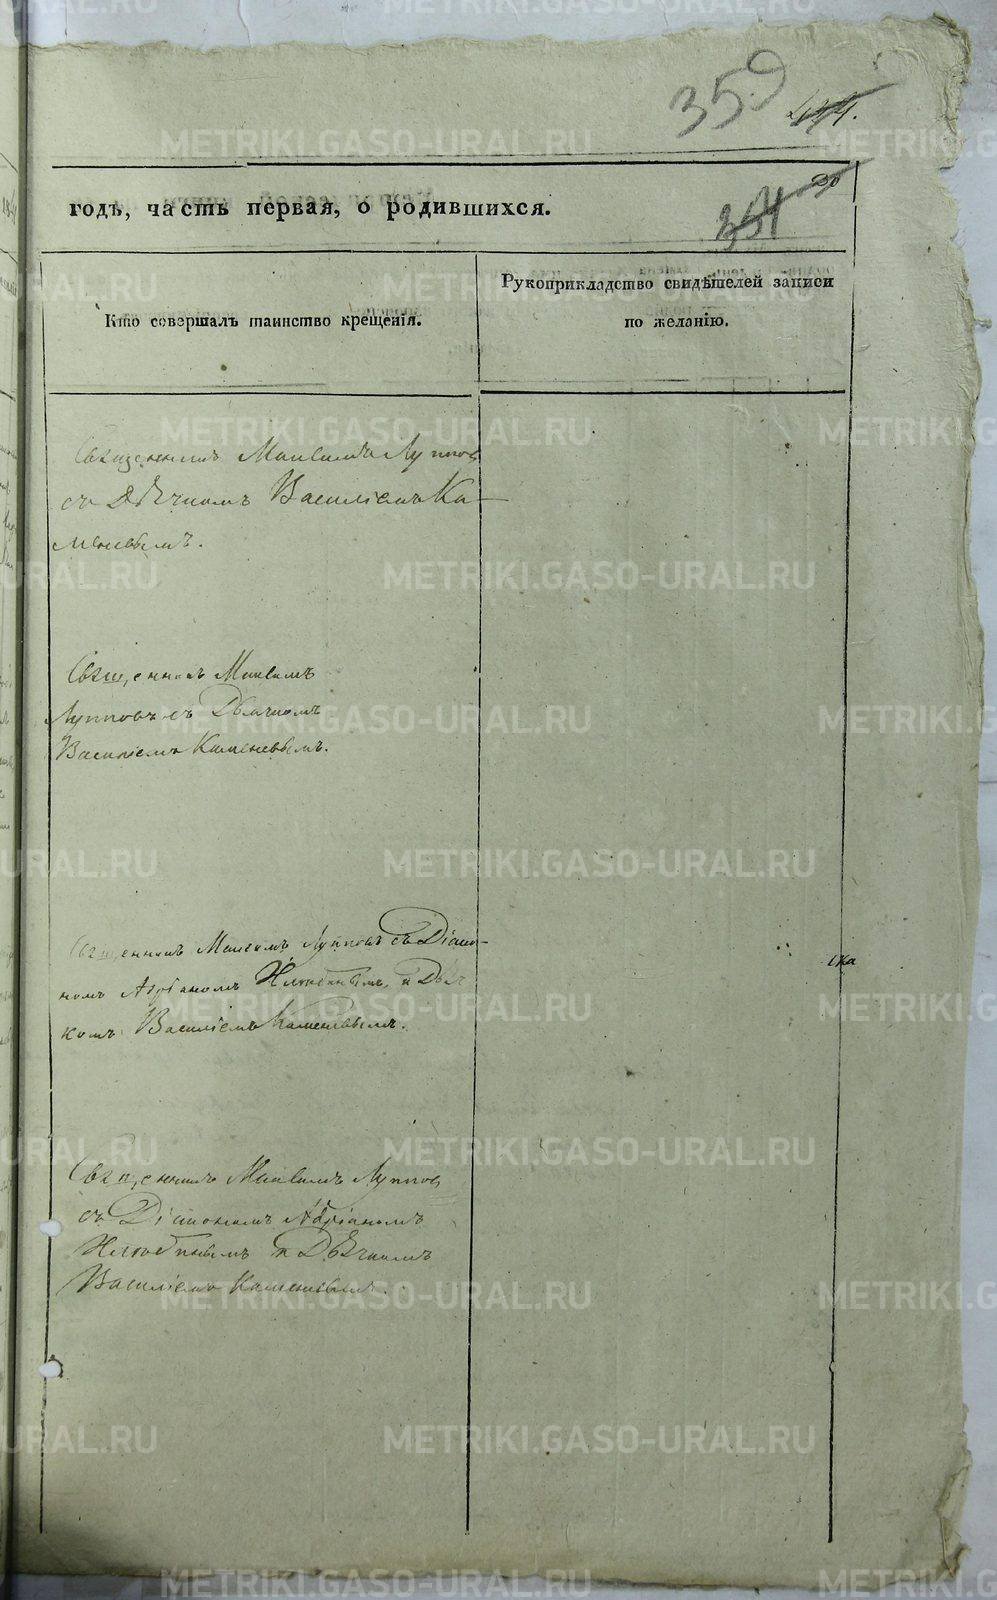 359
годъ, часть первая, о родившихся.
Кто совершалъ таинство крещенія.
Рукоприкладство свидѣтелей записи
по желанію.
Священникъ Максимъ Луппов
съ Дѣячкомъ Василіемъ Ка-
меневымъ.
Священникъ Максимъ
Лупповъ съ Дьячкомъ
Василіемъ Каменевымъ.
Священникъ Максимъ Лупповъ съ Діако-
номъ Адріаномъ и Дьяч
комъ Василіемъ Каменевымъ.
Священникъ Максимъ Луппов
съ Діакономъ Адріаномъ
и Дѣячкомъ
Василіемъ Каменевымъ.
METRIKI.GASO-URAL.RU